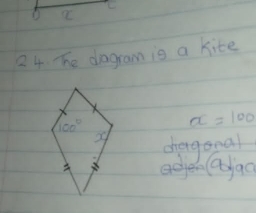 x
24. The diagram is a kite
100°
x
x = 100
diagonal